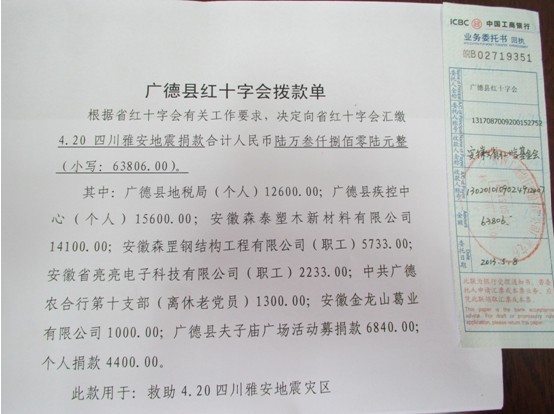 广德县红十字会拨款单
根据省红十字会有关工作要求，决定向省红十字会汇缴
4.20 四川雅安地震捐款合计人民币陆万叁仟捌佰零陆元整
（小写：63806.00）。
其中：广德县地税局（个人）12600.00；广德县疾控中
心（个人）15600.00；安徽森泰塑木新材料有限公司
14100.00；安徽森罡钢结构工程有限公司（职工）5733.00；
安徽省亮亮电子科技有限公司（职工）2233.00；中共广德
农合行第十支部（离休老党员）1300.00；安徽金龙山葛业
有限公司 1000.00；广德县夫子庙广场活动募捐款 6840.00；
个人捐款 4400.00。
此款用于：救助 4.20 四川雅安地震灾区
ICBC 中国工商银行
业务委托书 回执
皖B02719351
广德县红十字会
1317087009200152752
63806.